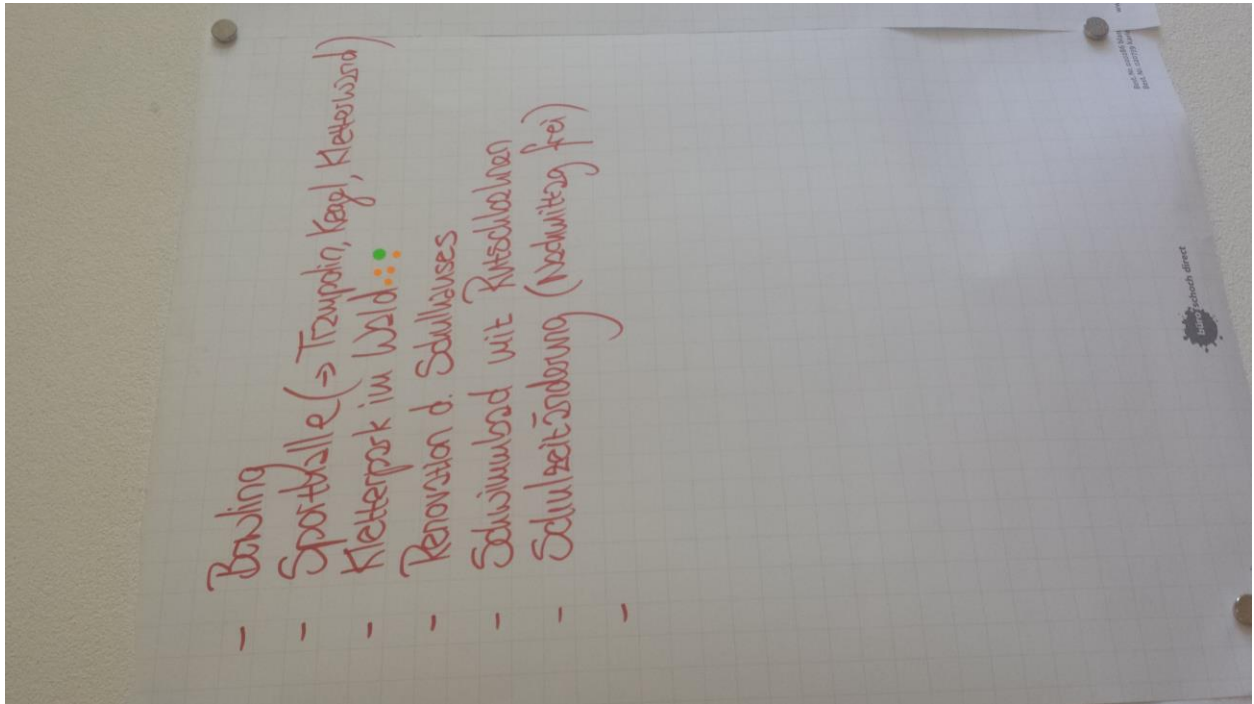 - Bowling
- Sporthalle (→ Trampolin, Kegel, Kletterwand)
- Kletterpark im Wald
- Renovation d. Schulhauses
- Schwimmbad mit Rutschbahnen
- Schulzeitänderung (Nachmittag frei)
-
büro schoch direct